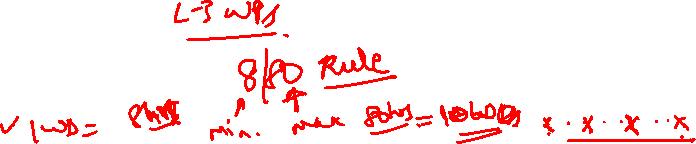 L-3 WPs
8/80 Rule
✓ 1WD = 8hrs min. max 80hrs = 10WDs x . x . . x . . x